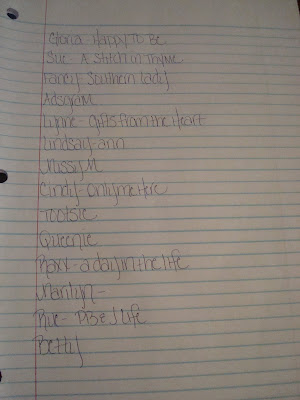 Gloria- Happy To Be
Sue- A Stitch in Thyme
Fancy Southern Lady
AdsgaM
Lynne- gifts from the Heart
Lindsay-ann
MissyM
Cindy- only me Here
Tootsie
Queenie
Roxy- a day in the life
Marilyn-
Rue- PB & J Life
Betty